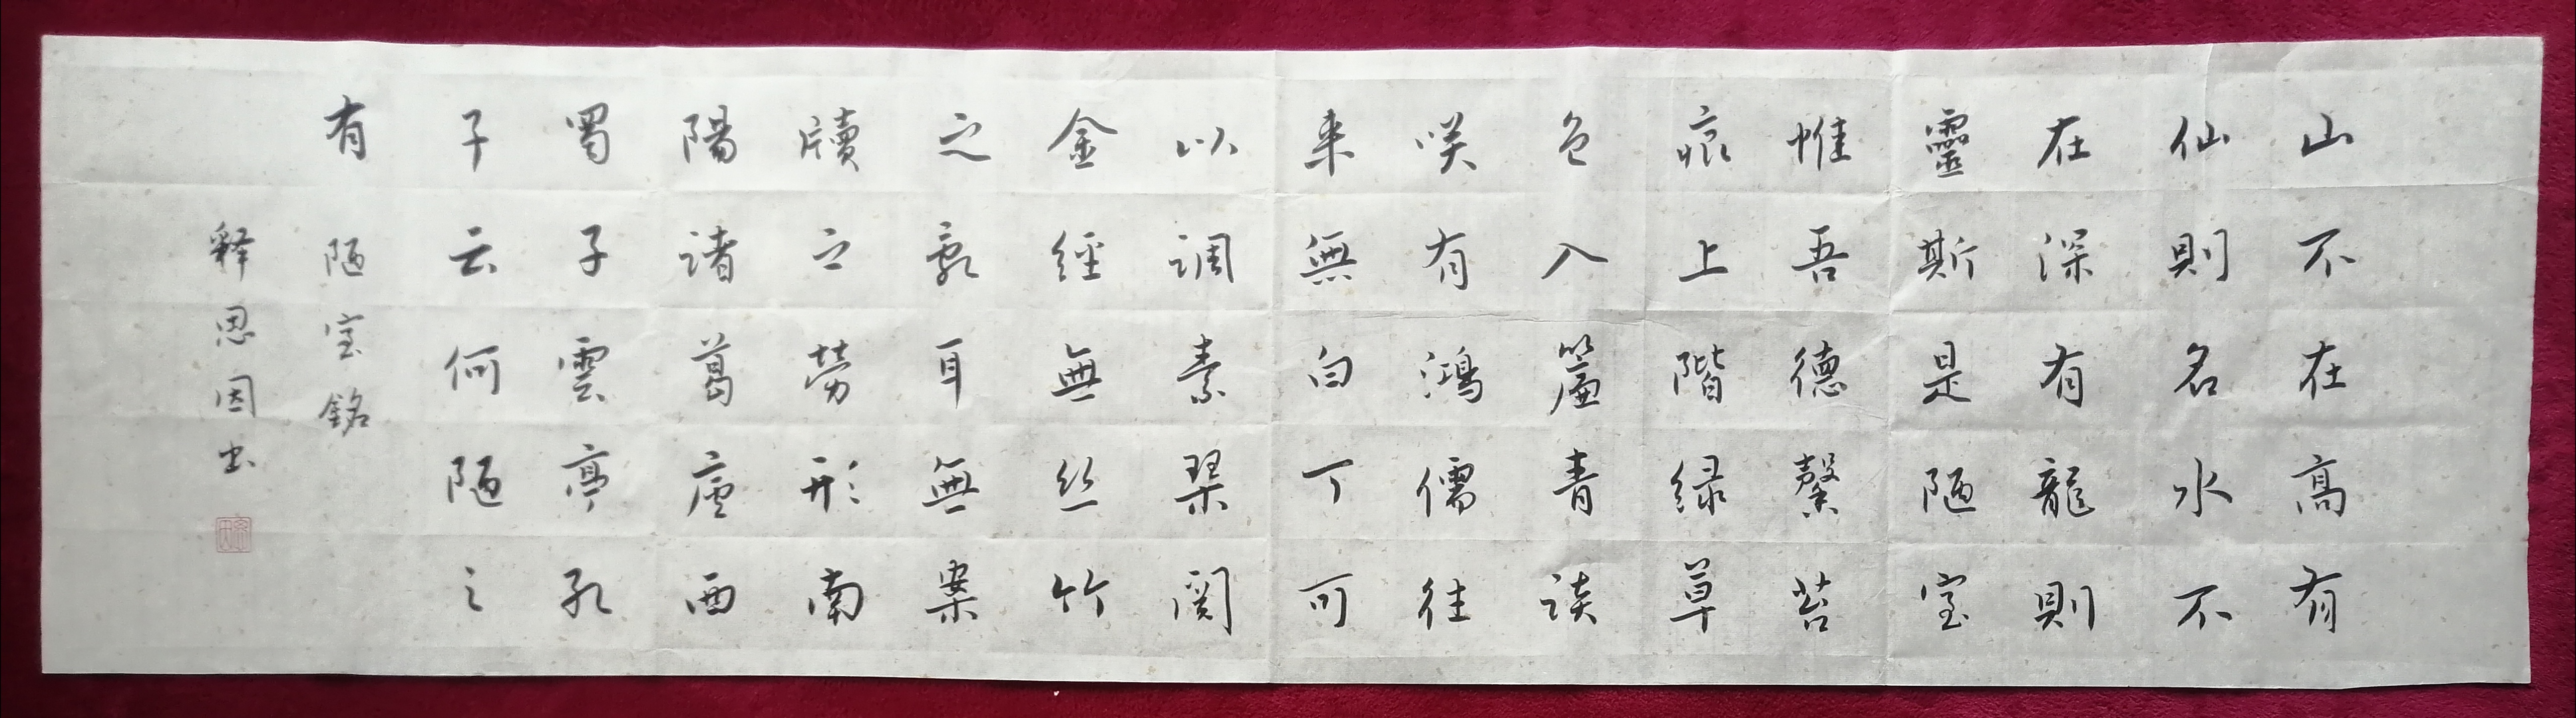 山不在高有
仙則名水不
在深有龍則
靈斯是陋室
惟吾德馨苔
痕上階绿草
色入簾青談
咲有鴻儒往
来無白丁可
以調素琴閲
金經無丝竹
之亂耳無案
牘之勞形南
陽諸葛廬西
蜀子雲亭孔
子云何陋之
有 陋室銘
释思因书